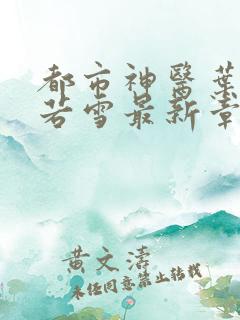 都市神醫葉
若雪最新章
黄文濤
未经同意禁止转载